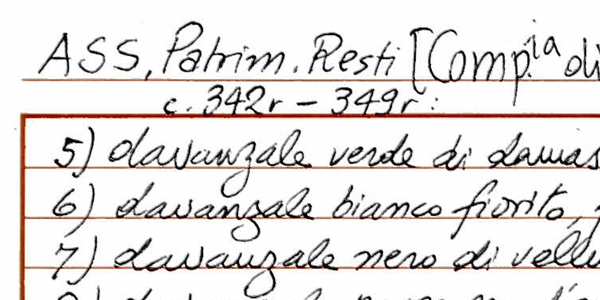 ASS, Patrim. Resti [Comp.ia di
c. 342r - 349r:
5) davanzale verde di damas
6) davanzale bianco fiorito,
7) davanzale nero di vellu